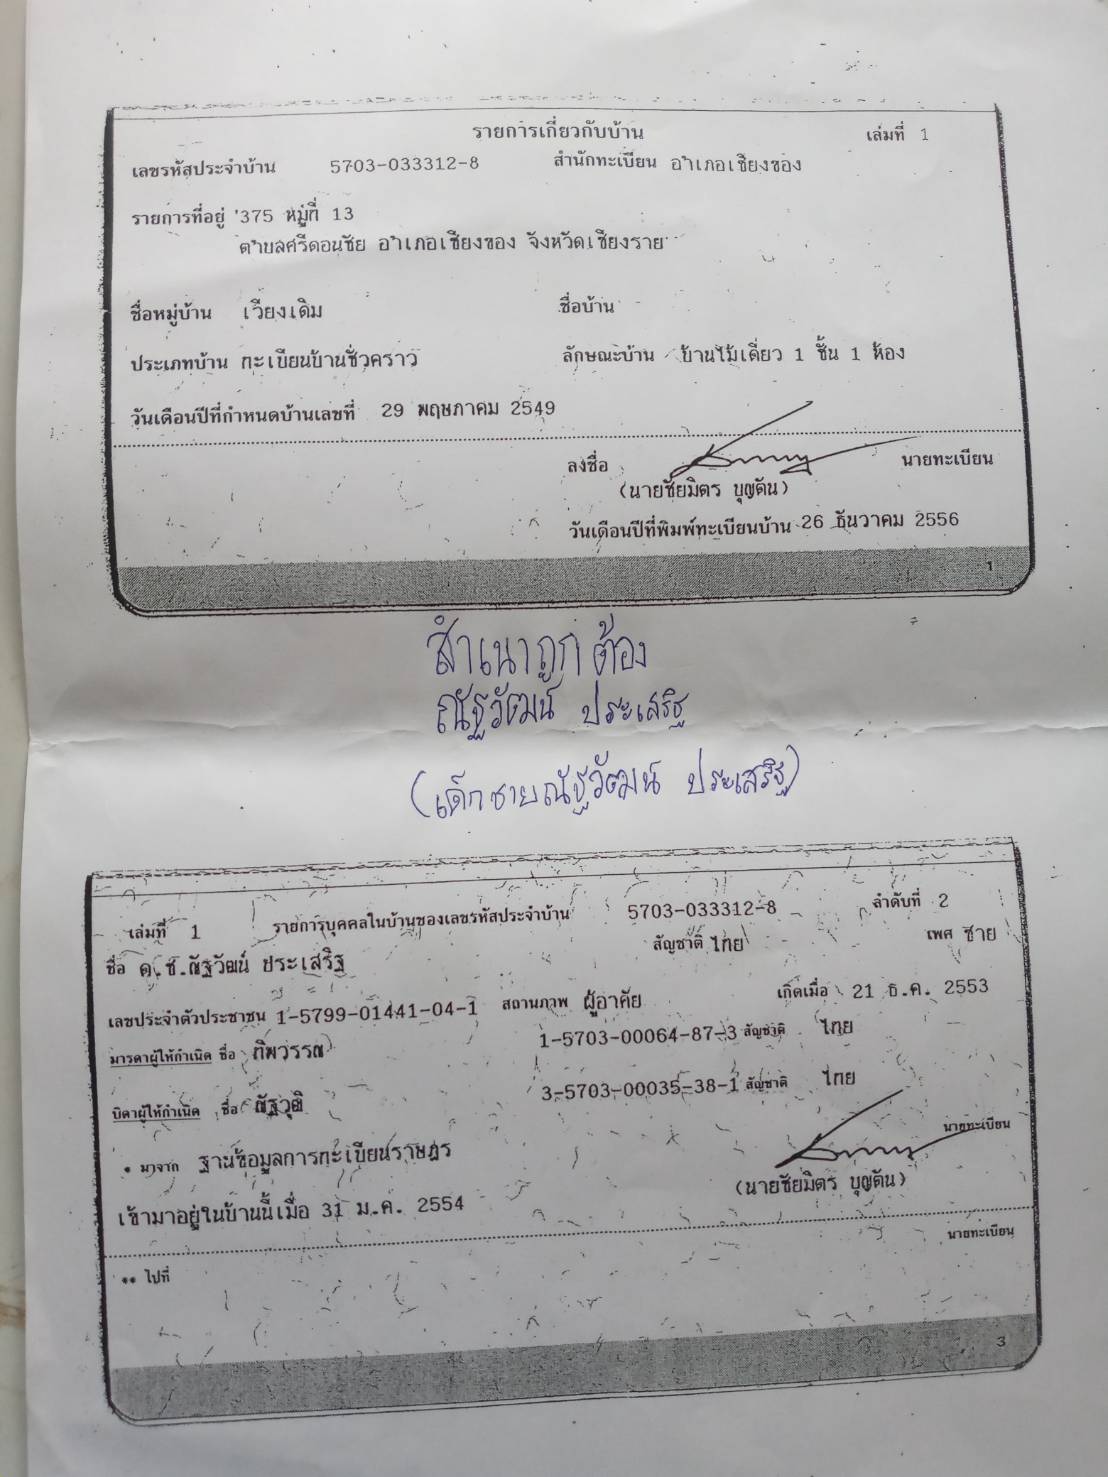 รายการเกี่ยวกับบ้าน เล่มที่ 1
เลขรหัสประจำบ้าน 5703-033312-8 สำนักทะเบียน อำเภอเชียงของ
รายการที่อยู่ 375 หมู่ที่ 13
ตำบลศรีดอนชัย อำเภอเชียงของ จังหวัดเชียงราย
ชื่อหมู่บ้าน เวียงเดิม ชื่อบ้าน
ประเภทบ้าน ทะเบียนบ้านชั่วคราว ลักษณะบ้าน บ้านไม้เดี่ยว 1 ชั้น 1 ห้อง
วันเดือนปีที่กำหนดบ้านเลขที่ 29 พฤษภาคม 2549
ลงชื่อ นายทะเบียน
(นายชัยมิตร บุญตัน)
วันเดือนปีที่พิมพ์ทะเบียนบ้าน 26 ธันวาคม 2556
1
สำเนาถูกต้อง
ณัฐวัฒน์ ประเสริฐ
(เด็กชายณัฐวัฒน์ ประเสริฐ)
เล่มที่ 1 รายการบุคคลในบ้านของเลขรหัสประจำบ้าน 5703-033312-8 ลำดับที่ 2
ชื่อ ด.ช.ณัฐวัฒน์ ประเสริฐ สัญชาติ ไทย เพศ ชาย
เลขประจำตัวประชาชน 1-5799-01441-04-1 สถานภาพ ผู้อาศัย เกิดเมื่อ 21 ธ.ค. 2553
มารดาผู้ให้กำเนิด ชื่อ ทิพวรรณ 1-5703-00064-87-3 สัญชาติ ไทย
บิดาผู้ให้กำเนิด ชื่อ ณัฐวุฒิ 3-5703-00035-38-1 สัญชาติ ไทย
* มาจาก ฐานข้อมูลการทะเบียนราษฎร นายทะเบียน
(นายชัยมิตร บุญตัน)
เข้ามาอยู่ในบ้านนี้เมื่อ 31 ม.ค. 2554
** ไปที่ นายทะเบียน
3